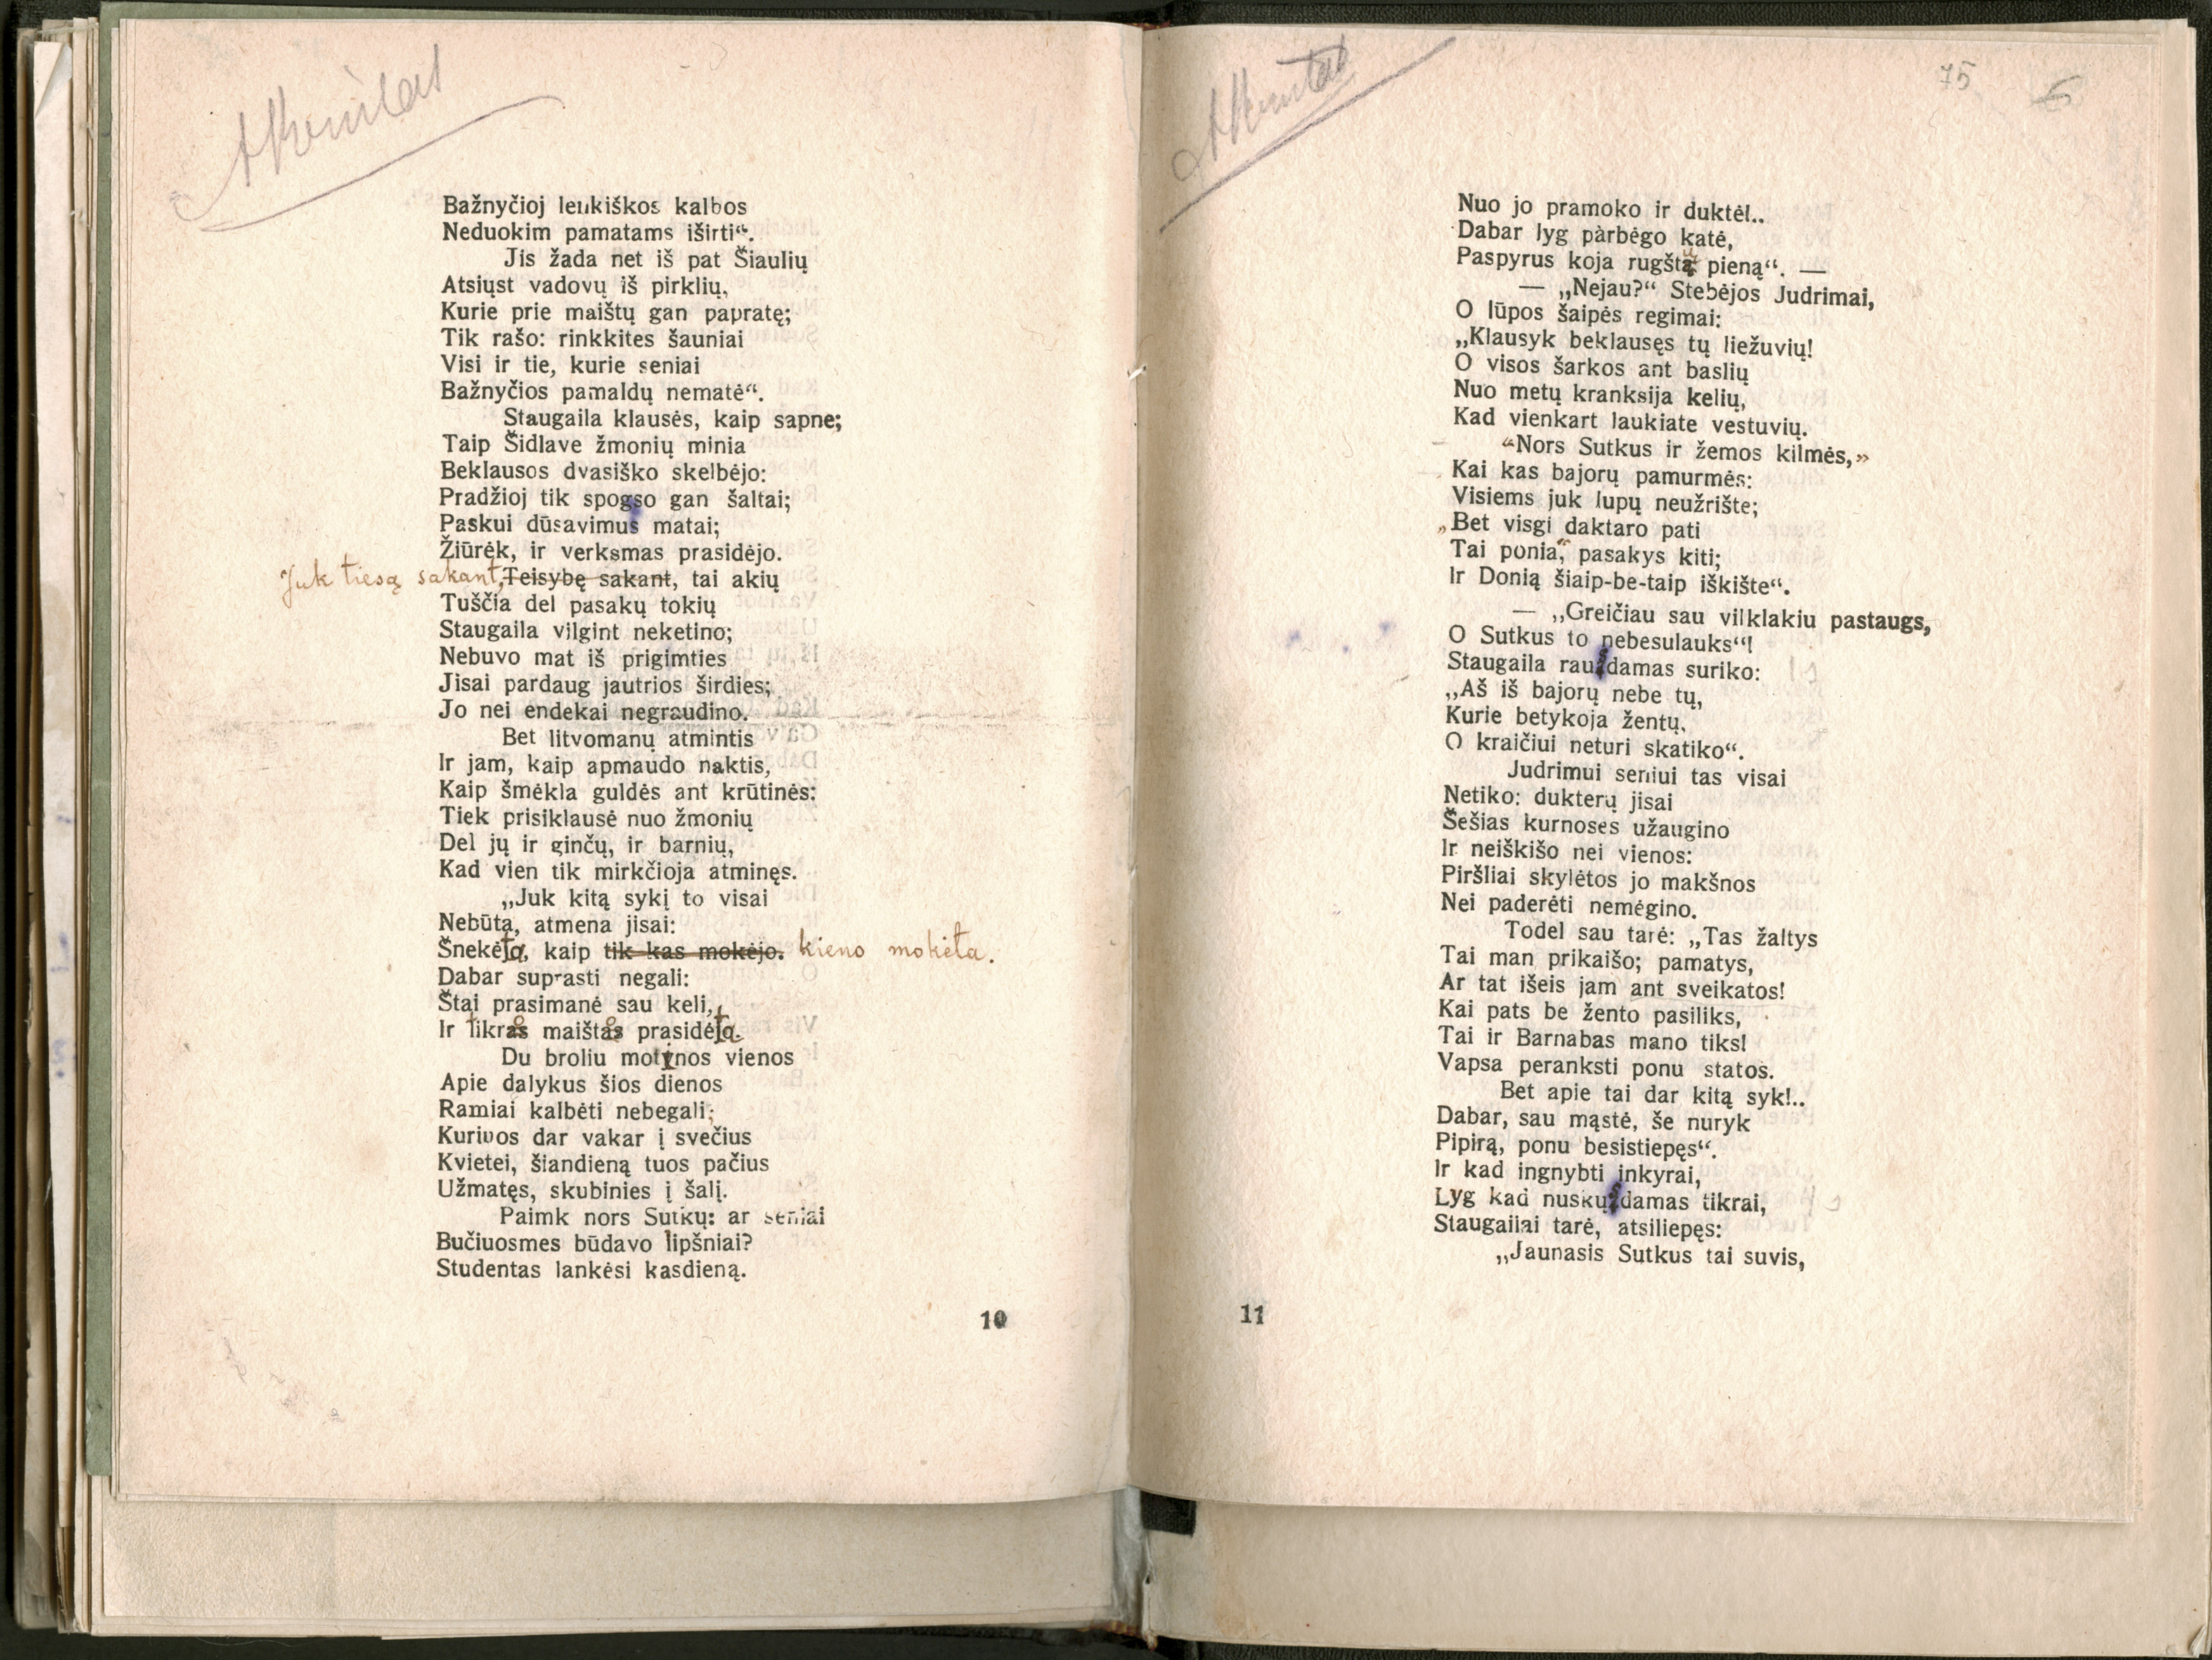 Bažnyčioj lenkiškos kalbos
Neduokim pamatams iširti“.
Jis žada net iš pat Šiaulių
Atsiųst vadovų iš pirklių,
Kurie prie maištų gan papratę;
Tik rašo: rinkkites šauniai
Visi ir tie, kurie seniai
Bažnyčios pamaldų nematė“.
Staugaila klausės, kaip sapne;
Taip Šidlave žmonių minia
Beklausos dvasiško skelbėjo:
Pradžioj tik spogso gan šaltai;
Paskui dūsavimus matai;
Žiūrėk, ir verksmas prasidėjo.
Juk tiesą sakant, Teisybę sakant, tai akių
Tuščia del pasakų tokių
Staugaila vilgint neketino;
Nebuvo mat iš prigimties
Jisai pardaug jautrios širdies;
Jo nei endekai negraudino.
Bet litvomanų atmintis
Ir jam, kaip apmaudo naktis,
Kaip šmėkla guldės ant krūtinės:
Tiek prisiklausė nuo žmonių
Del jų ir ginčų, ir barnių,
Kad vien tik mirkčioja atminęs.
„Juk kitą sykį to visai
Nebūta, atmena jisai:
Šnekėta, kaip tik kas mokėjo. kieno mokėta.
Dabar suprasti negali:
Štai prasimanė sau keli,
Ir tikros maištos prasidėta.
Du broliu motinos vienos
Apie dalykus šios dienos
Ramiai kalbėti nebegali;
Kuriuos dar vakar į svečius
Kvietei, šiandieną tuos pačius
Užmatęs, skubinies į šalį.
Paimk nors Sutkų: ar seniai
Bučiuosmes būdavo lipšniai?
Studentas lankėsi kasdieną.
10
75
Nuo jo pramoko ir duktė!..
Dabar lyg pàrbėgo katė,
Paspyrus koja rugštų pieną“. —
— „Nejau?“ Stebėjos Judrimai,
O lūpos šaipės regimai:
„Klausyk beklausęs tų liežuvių!
O visos šarkos ant baslių
Nuo metų kranksija kelių,
Kad vienkart laukiate vestuvių.
“Nors Sutkus ir žemos kilmės,”
Kai kas bajorų pamurmės:
Visiems juk lupų neužrište;
„Bet visgi daktaro pati
Tai ponia,“ pasakys kiti;
Ir Donią šiaip-be-taip iškište“.
— „Greičiau sau vilklakiu pastaugs,
O Sutkus to nebesulauks“!
Staugaila rausdamas suriko:
„Aš iš bajorų nebe tų,
Kurie betykoja žentų,
O kraičiui neturi skatiko“.
Judrimui seniui tas visai
Netiko: dukterų jisai
Šešias kurnoses užaugino
Ir neiškišo nei vienos:
Piršliai skylėtos jo makšnos
Nei paderėti nemėgino.
Todel sau tarė: „Tas žaltys
Tai man prikaišo; pamatys,
Ar tat išeis jam ant sveikatos!
Kai pats be žento pasiliks,
Tai ir Barnabas mano tiks!
Vapsa peranksti ponu statos.
Bet apie tai dar kitą syk!..
Dabar, sau mąstė, še nuryk
Pipirą, ponu besistiepęs“.
Ir kad ingnybti inkyrai,
Lyg kad nuskųsdamas tikrai,
Staugailai tarė, atsiliepęs:
„Jaunasis Sutkus tai suvis,
11